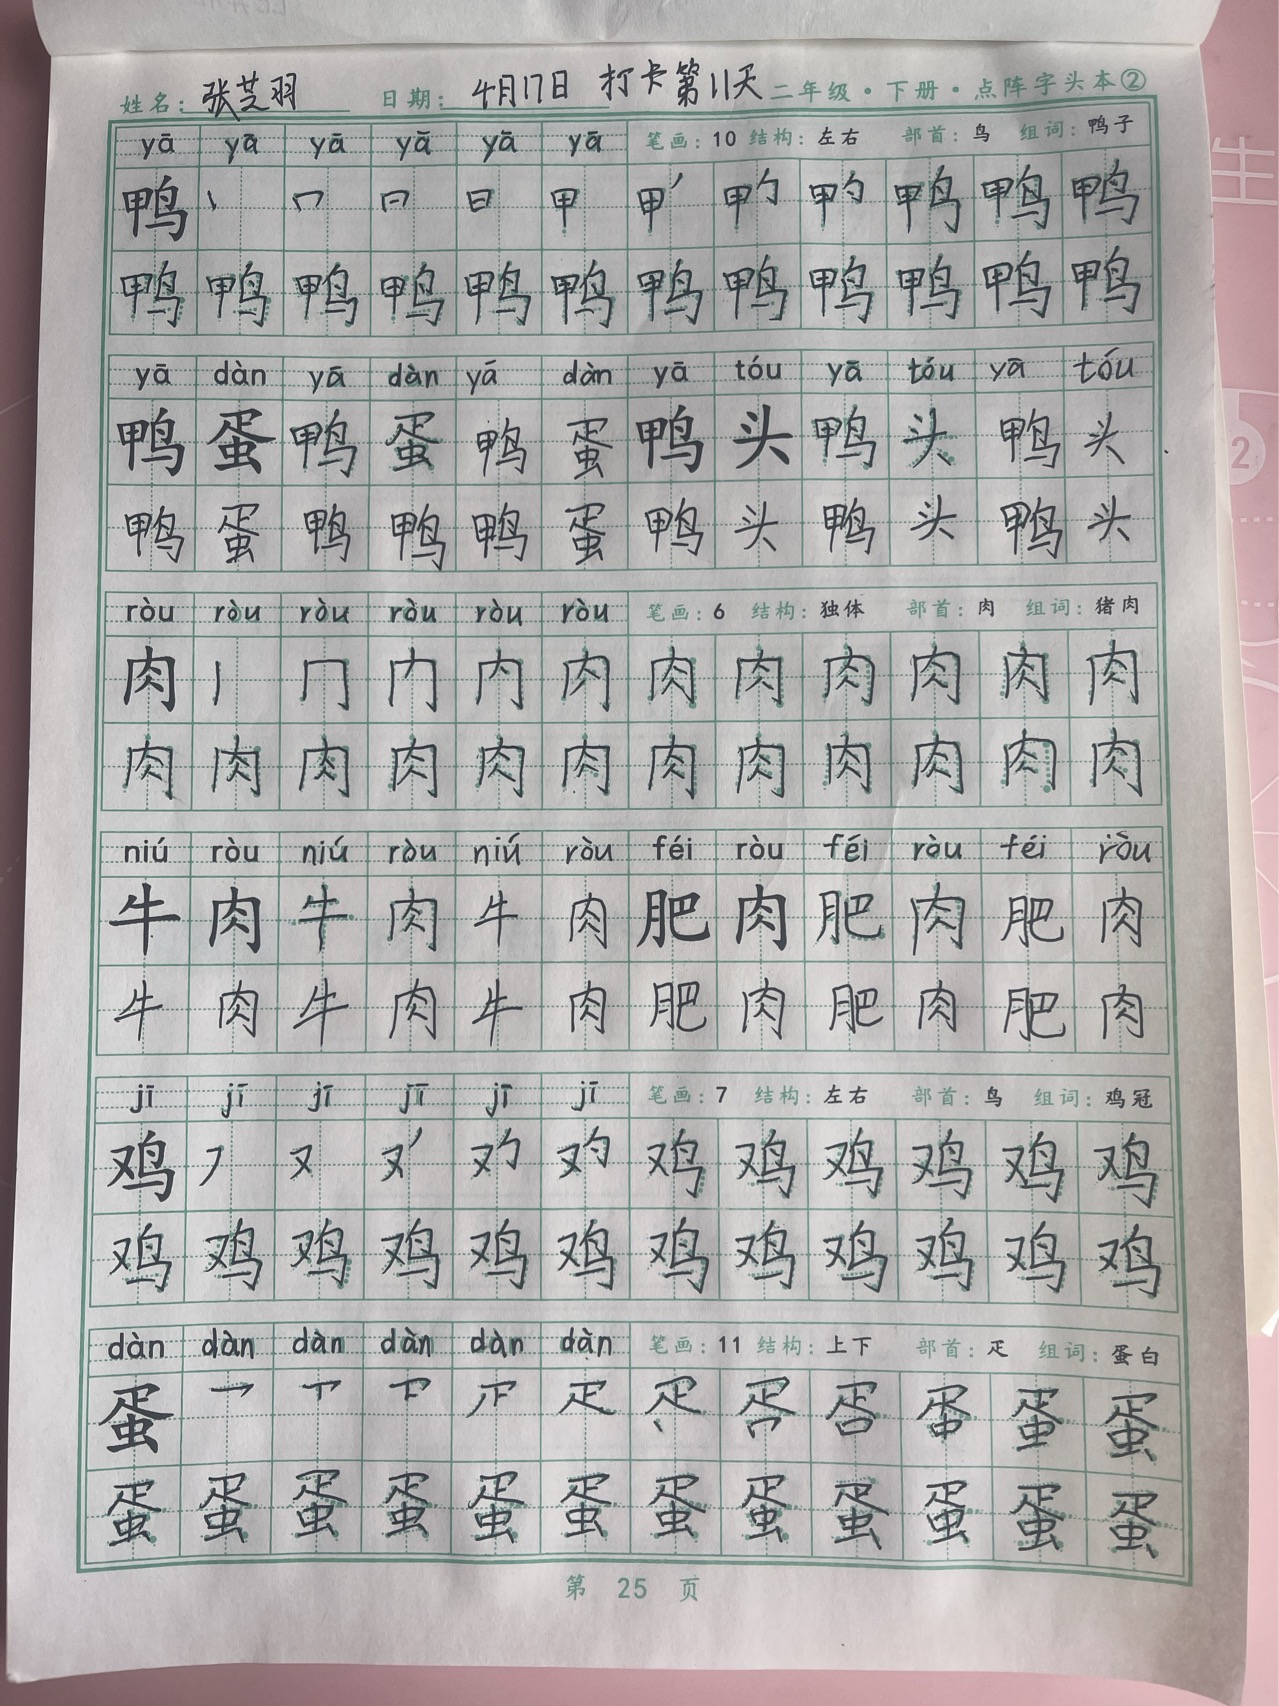 姓名：张芝羽 日期：4月17日 打卡第11天 二年级·下册·点阵字头本②
yā yā yā yā yā yā 笔画：10 结构：左右 部首：鸟 组词：鸭子
鸭 甲 鸭 鸭 鸭
鸭 鸭 鸭 鸭 鸭 鸭 鸭 鸭 鸭 鸭 鸭 鸭
yā dàn yā dàn yá dàn yā tóu yā tóu yā tóu
鸭 蛋 鸭 蛋 鸭 蛋 鸭 头 鸭 头 鸭 头
鸭 蛋 鸭 鸭 鸭 蛋 鸭 头 鸭 头 鸭 头
ròu ròu ròu ròu ròu ròu 笔画：6 结构：独体 部首：肉 组词：猪肉
肉 丨 冂 内 肉 肉 肉 肉 肉 肉
肉 肉 肉 肉 肉 肉 肉 肉 肉 肉 肉 肉
niú ròu niú ròu niú ròu féi ròu féi ròu féi ròu
牛 肉 牛 肉 牛 肉 肥 肉 肥 肉 肥 肉
牛 肉 牛 肉 牛 肉 肥 肉 肥 肉 肥 肉
jī jī jī jī jī jī 笔画：7 结构：左右 部首：鸟 组词：鸡冠
鸡 又 鸡 鸡 鸡 鸡 鸡 鸡
鸡 鸡 鸡 鸡 鸡 鸡 鸡 鸡 鸡 鸡 鸡 鸡
dàn dàn dàn dàn dàn dàn 笔画：11 结构：上下 部首：疋 组词：蛋白
蛋 一 丅 疋 蛋 蛋
蛋 蛋 蛋 蛋 蛋 蛋 蛋 蛋 蛋 蛋 蛋 蛋
第 25 页
生
2